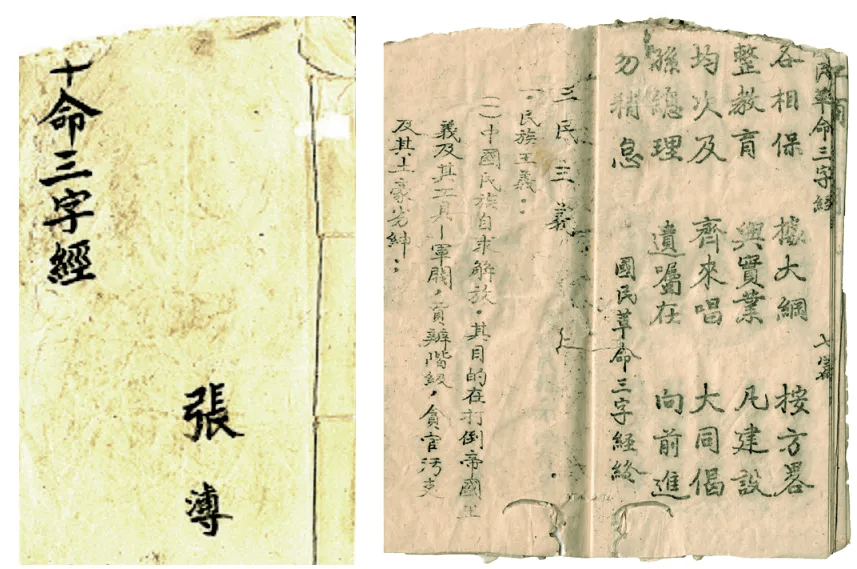 命三字經
張溥
民革命三字經
各相保 據大綱 按方畧
整教育 興實業 凡建設
均次及 齊來唱 大同偈
孫總理 遺囑在 向前進
勿稍怠 國民革命三字經終
三民主義
一．民族主義：
(一)中國民族自求解放，其目的在打倒帝國主
義及其工具—軍閥，買辦階級，貪官污吏
及其土豪劣紳；